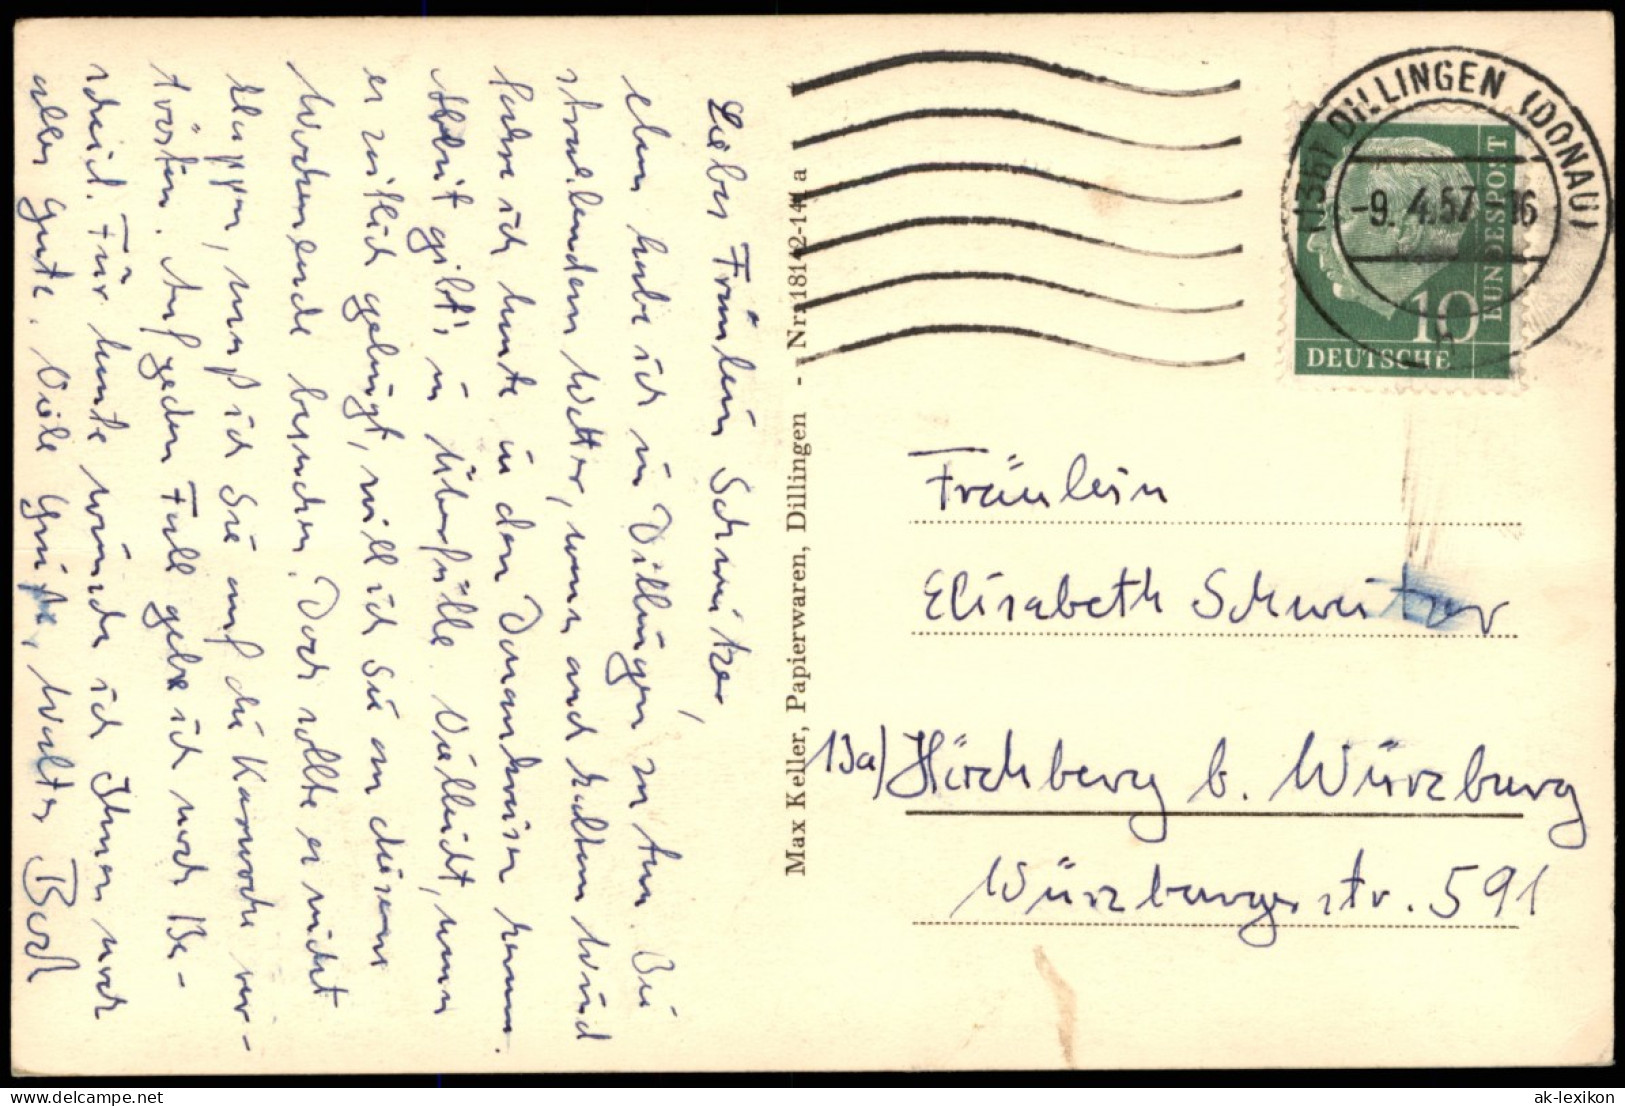 Liebes Fräulein Schweitzer,
eben habe ich in Dillingen zu tun. Bei
strahlendem Wetter, wenn auch kaltem Wind
fahre ich heute in den Donaukreisen herum.
Arbeit gibt's in Überfülle. Vielleicht, wenn
es zeitlich gelingt, will ich Sie an diesem
Wochenende besuchen. Doch sollte es nicht
klappen, muß ich Sie auf die Karwoche ver-
trösten. Auf jeden Fall gebe ich noch Be-
scheid. Für heute wünsche ich Ihnen noch
alles Gute. Viele Grüße, Walter
Max Keller, Papierwaren, Dillingen - Nr. 18142-141 a
(13b) DILLINGEN (DONAU)
-9. 4.57 -16
h
10
DEUTSCHE
BUNDESPOST
Fräulein
Elisabeth Schweitzer
13a) Höchberg b. Würzburg
Würzburgerstr. 591
delcampe.net
ak-lexikon